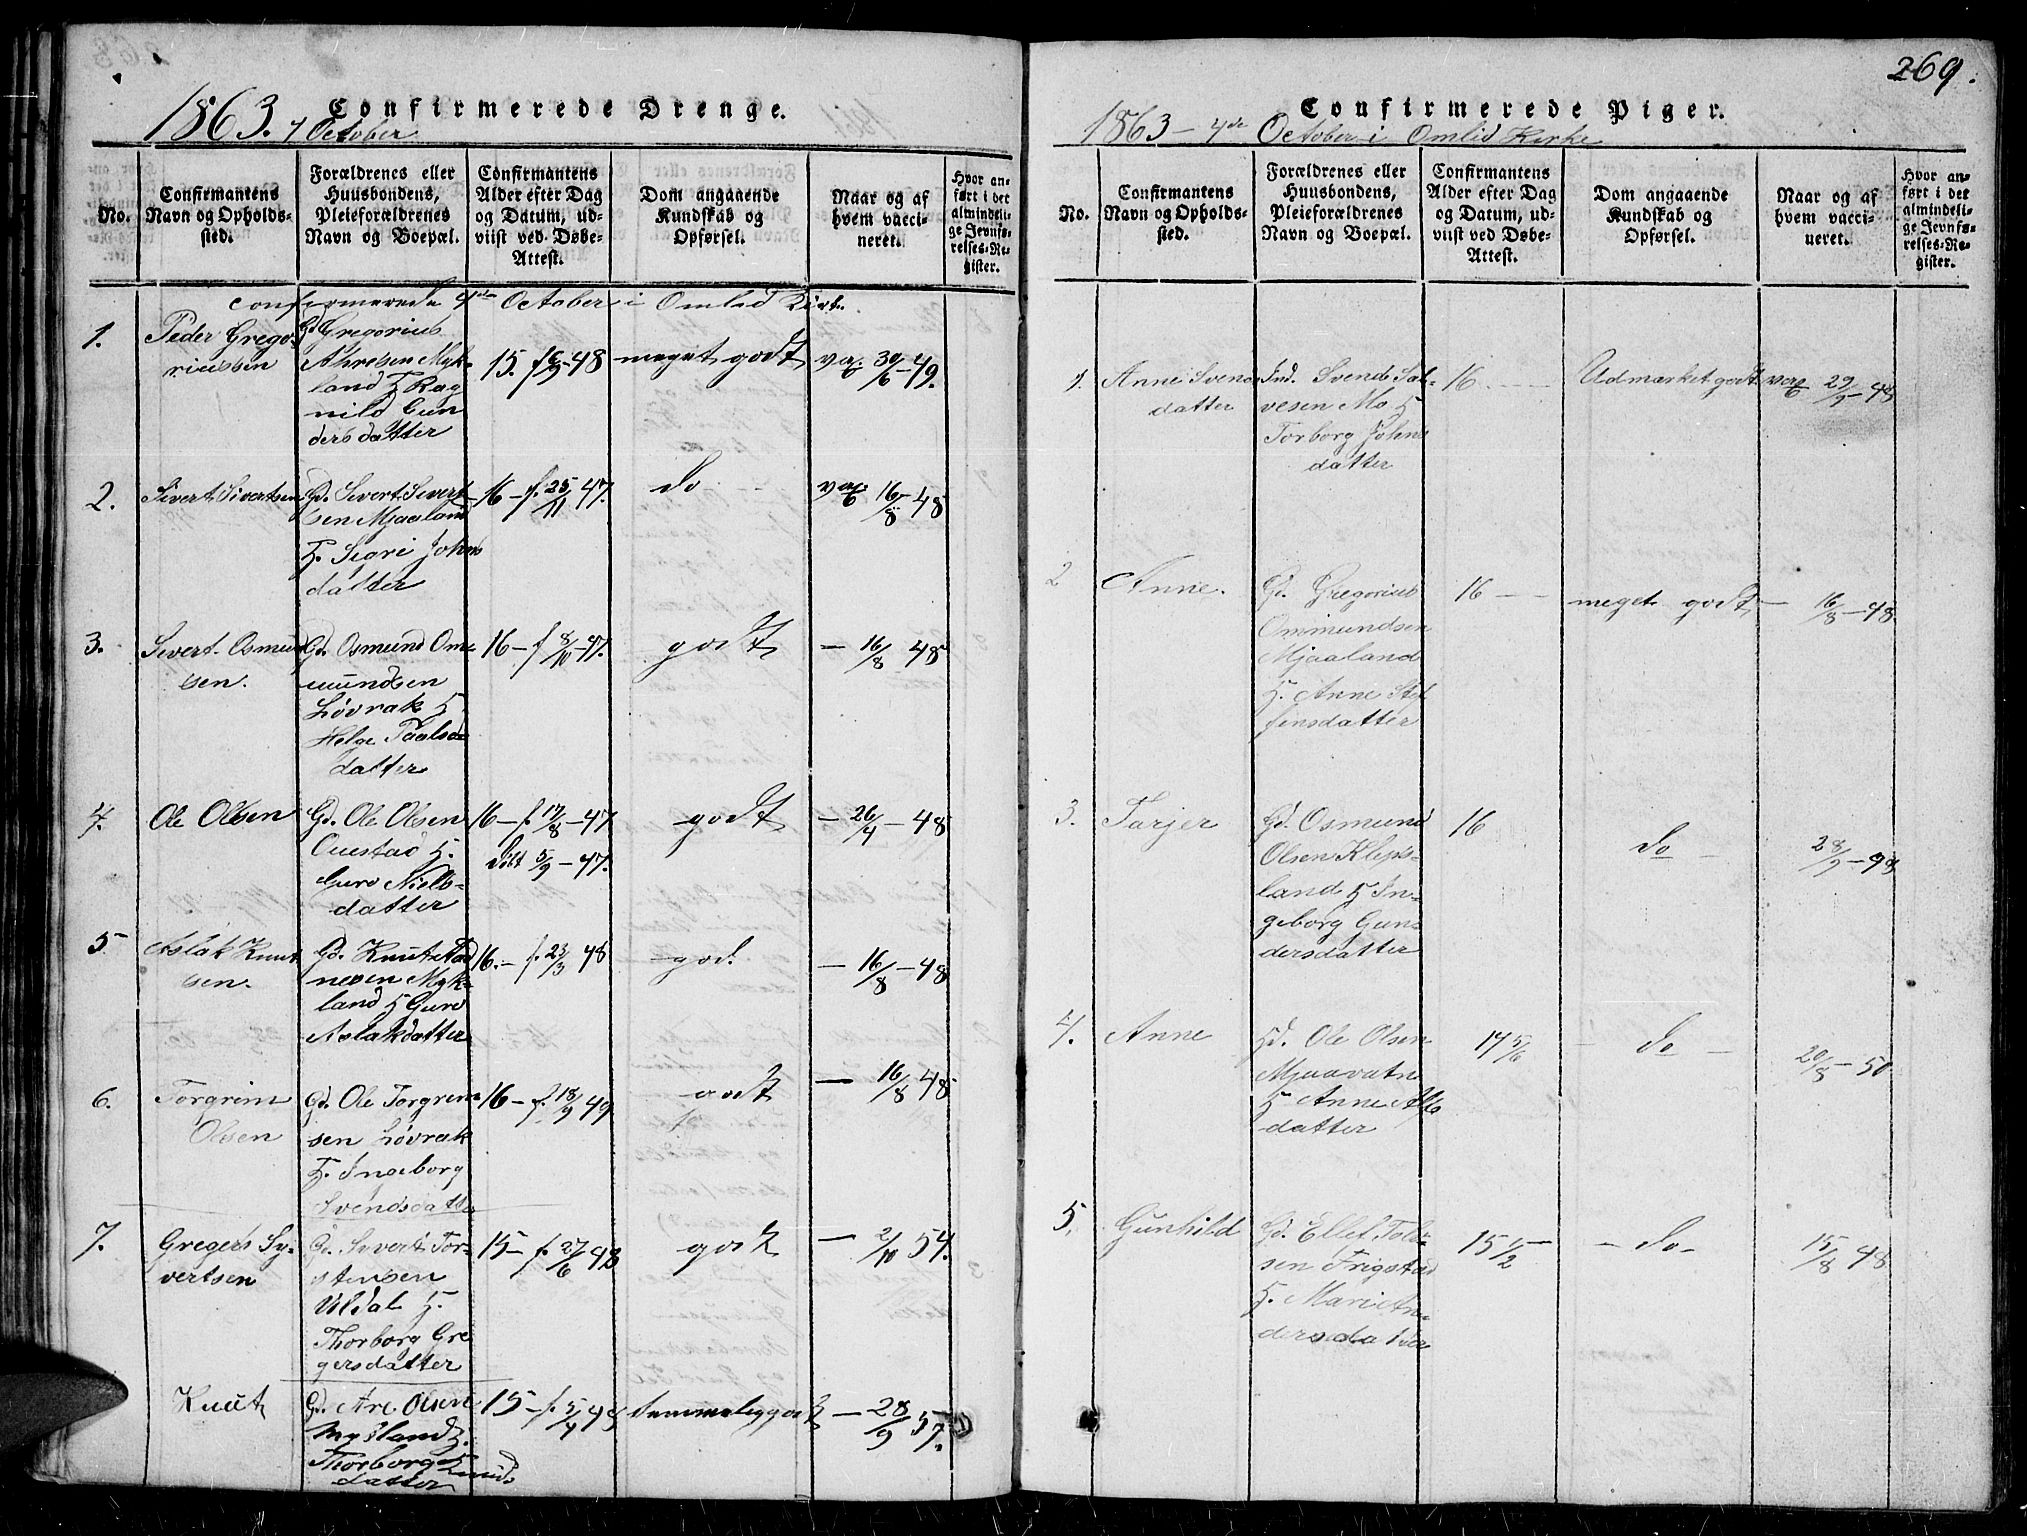 1863. 4 October
Confirmerede Drenge.
No.
Confirmantens Navn og Opholds-sted.
Forældrenes eller Huusbondens, Pleieforældrenes Navn og Boepæl.
Confirmantens Alder efter Dag og Datum, ud-viist ved Døbe-Attest.
Dom angaaende Kundskab og Opførsel.
Naar og af hvem vacci-neret.
Hvor an-ført i det almindeli-ge Jevnfø-relses-Re-gister.
confirmerede 4de October i Omlid Kirke
1.
Peder Grego-
riussen
Gd. Gregorius
Myk-
land H Rag
nild Gun
dersdatter
15. f. 6/9-48
meget godt
vac. 30/6-49.
2.
Sivert Sivertsen
Gd. Sivert Sivert
sen Mjaaland
H. Sigri Johns
datter
16 - f. 25/11 47.
do
vac. 16/8-48
3.
Sivert Osmund
sen.
Gd. Osmund Om-
mundsen
Løvrak H.
Helge Taalso
datter
16 - f 8/10-47.
godt
- 16/8 48
4.
Ole Olsen
Gd. Ole Olsen
H.
Guro Niels-
datter
16 - f. 17/8-47
Døbt 5/9-47.
godt
- 26/4-48
5
Aslak Knut
sen.
Gd. Knut Tad
nesen Myk-
land H Guro
Aslakdatter
16. - f. 23/3 48
god.
- 16/8-48
6.
Torgrim
Olsen
Gd. Ole Torgrim
sen Løvrak
H. Ingeborg
Svendsdatte
16 - f. 18/9 49
godt
- 16/8 48
7.
Gregers Sy-
vertsen
Gd. Syvert Tor-
stensen
Uldal H.
Thorborg Gre
gersdatter
15 - f. 27/6 48
godt
- 2/10 54.
Knut
Gd. Are Olsen
Mykland H.
Thorborg Knuds
datter
15 - f. 5/4 48
temmelig godt
- 28/9 57.
269.
Confirmerede Piger.
1863 - 4de October i Omlid Kirke
No.
Confirmantens Navn og Opholds-sted.
Forældrenes eller Huusbondens, Pleieforældrenes Navn og Boepæl.
Confirmantens Alder efter Dag og Datum, ud-viist ved Døbe-Attest.
Dom angaaende Kundskab og Opførsel.
Naar og af hvem vacci-neret.
Hvor an-ført i det almindeli-ge Jevnfø-relses-Re-gister.
1.
Anne Svends
datter
Ind. Svend Sal-
vesen Mo H
Torborg Johns
datter
16
Udmærket godt
vac 29/9-48
2
Anne.
Gd. Gregorius
Ommundsen
Mjaaland
H. Anne Stef
fensdatter
16
meget godt
- 16/8-48
3.
Tarjer
Gd. Osmund
Olsen Kleps-
land H In-
geborg Gun-
dersdatter
16
do
28/9-48
4.
Anne
Hd. Ole Olsen
Mjaavatn
H Anne Alfs
datter
14 5/6
- do -
20/8-50
5.
Gunhild
Gd. Ellef Toler-
sen Frigstad
H. Marie An-
dersdatter
15 1/2
- do -
15/8 48